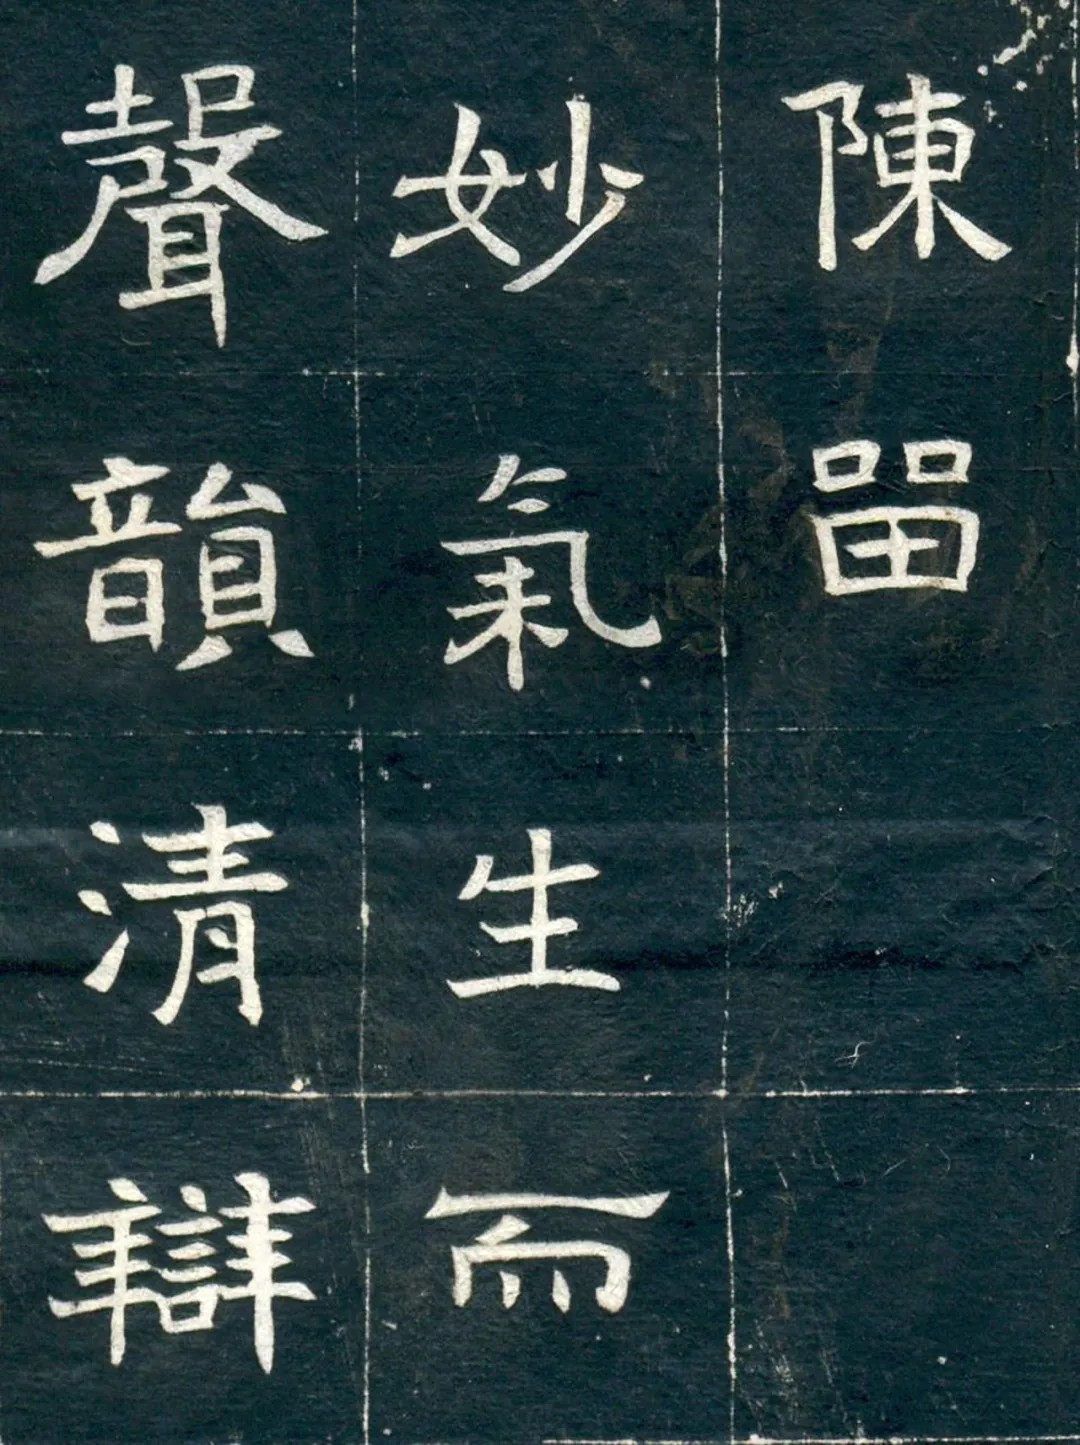 陳畱
妙氣生而
聲韻清辯